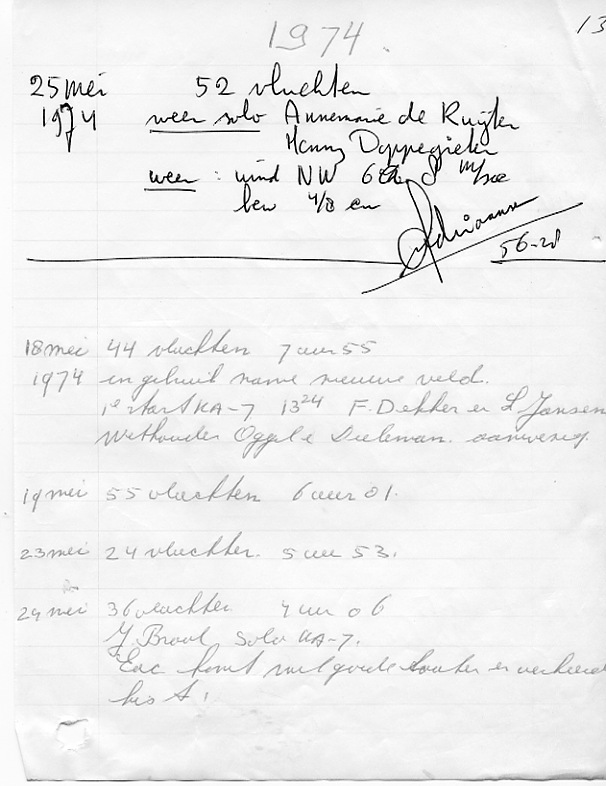 13
1974.
25 mei 52 vluchten
1974 weer solo Annemarie de Ruijter
Hanny
weer : wind NW 6 8 m/sec
ben 4/8 en
Adriaanse
56-28
18 mei 44 vluchten 7 uur 55
1974 in gebruik name nieuwe veld.
1e start KA-7 13 24 F. Dekker en L Jansen
Wethouder Oggel e Dieleman. aanwezig.
19 mei 55 vluchten 6 uur 01.
23 mei 24 vluchten. 5 uur 53.
24 mei 36 vluchten 4 uur 06
J. Solo KA-7.